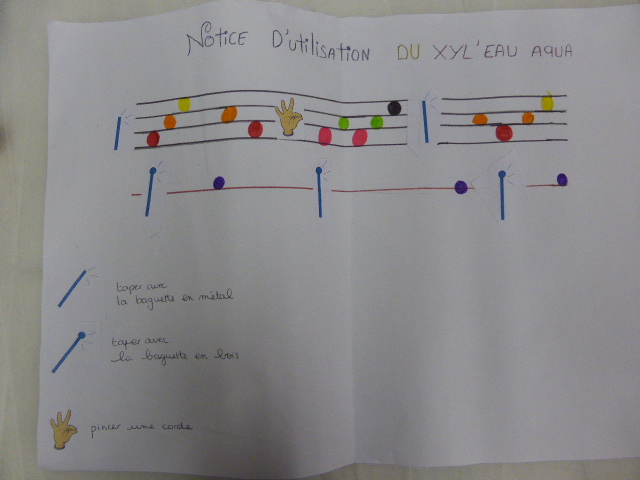 Notice D'utilisation DU XYL'EAU AQUA
taper avec
la baguette en métal
taper avec
la baguette en bois
pincer une corde